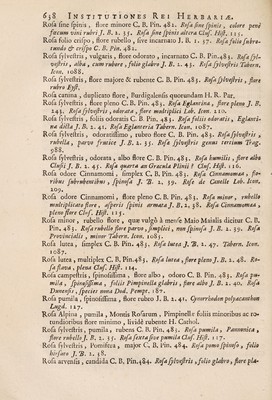 638 INSTITUTIONES REI HERBARIÆ.
Rosa sine spinis, flore minore C. B. Pin. 481. Rosa sine spinis, colore penè
fuscum vini rubri J. B. 2. 35. Rosa sine spinis altera Clus. Hist. 115.
Rosa folio crispo, flore rubello, sive incarnato J. B. 2. 37. Rosa folio subro-
tundo & crispo C. B. Pin. 481.
Rosa sylvestris, vulgaris, flore odorato, incarnato C. B. Pin. 483. Rosa syl-
vestris, alba, cum rubore, folio glabro J. B. 2. 43. Rosa sylvestris Tabern.
Icon. 1088.
Rosa sylvestris, flore majore & rubente C. B. Pin. 483. Rosa sylvestris, flore
rubro Eyst.
Rosa canina, duplicato flore, Burdigalensis quorumdam H. R. Par.
Rosa sylvestris, flore pleno C. B. Pin. 483. Rosa Eglanteria, flore pleno J. B.
243. Rosa sylvestris, odorata, flore multiplici Lob. Icon. 211.
Rosa sylvestris, foliis odoratis C. B. Pin. 483. Rosa foliis odoratis, Eglanti-
na dicta J. B. 2. 41. Rosa Eglanteria Tabern. Icon. 1087.
Rosa sylvestris, odoratissimo, rubro flore C. B. Pin. 483. Rosa sylvestris,
rubella, parvo fructice J. B. 2. 35. Rosa sylvestris genus tertium Trag.
988.
Rosa sylvestris, odorata, albo flore C. B. Pin. 483. Rosa humilis, flore albo
Clusij J. B. 2. 43. Rosa quarta an Græcula Plinii? Clus. Hist. 116.
Rosa odore Cinnamomi, simplex C. B. Pin. 483. Rosa Cinnamomea, flo-
ribus subrubentibus, spinosa J. B. 2. 39. Rose de Canelle Lob. Icon.
209.
Rosa odore Cinnamomi, flore pleno C. B. Pin. 483. Rosa minor, rubello
multiplicato flore, asperis spinis armata J. B. 2. 38. Rosa Cinnamomea,
pleno flore Clus. Hist. 115.
Rosa minor, rubello flore, quæ vulgò à mense Maio Maialis dicitur C. B.
Pin. 483. Rosa rubello flore parvo, simplici, non spinosa J. B. 2. 39. Rosa
Provincialis, minor Tabern. Icon. 1081.
Rosa lutea, simplex C. B. Pin. 483. Rosa lutea J. B. 2. 47. Tabern. Icon.
1087.
Rosa lutea, multiplex C. B. Pin. 483. Rosa lutea, flore pleno J. B. 2. 48. Ro-
sa flava, plena Clus. Hist. 114.
Rosa campestris, spinosissima, flore albo, odoro C. B. Pin. 483. Rosa pu-
mila, spinosissima, foliis Pimpinellæ glabris, flore albo J. B. 2. 40. Rosa
Dunensis, species nona Dod. Pempt. 187.
Rosa pumila, spinosissima, flore rubro J. B. 2. 41. Cynorrhodon polyacanthon
Lugd. 127.
Rosa Alpina, pumila, Montis Rosarum, Pimpinellæ foliis minoribus ac ro-
tundioribus flore minimo, lividè rubente H. Cathol.
Rosa sylvestris, pumila, rubens C. B. Pin. 483. Rosa pumila, Pannonica,
flore rubello J. B. 2. 35. Rosa sexta sive pumila Clus. Hist. 117.
Rosa sylvestris, Pomifera, major C. B. Pin. 484. Rosa pomo spinoso, folio
hirsuto J. B. 2. 38.
Rosa arvensis, candida C. B. Pin. 484. Rosa sylvestris, folio glabro, flore pla-